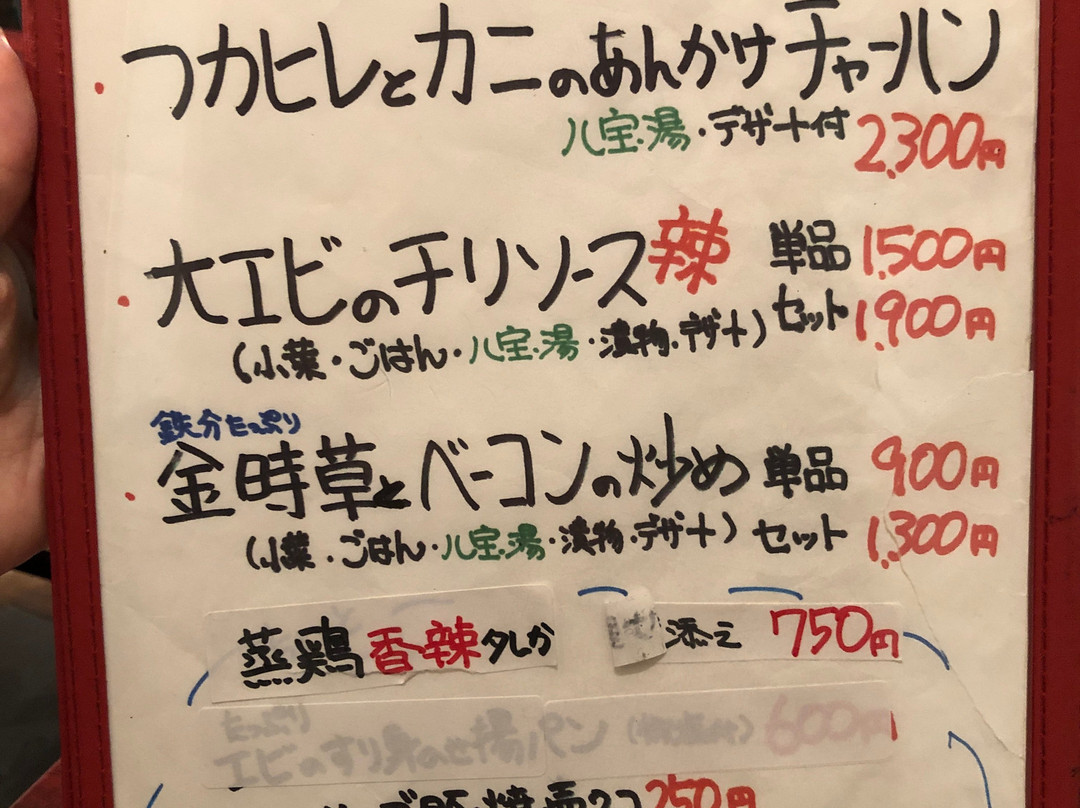 ・フカヒレとカニのあんかけチャーハン
八宝湯・デザート付 2,300円
・大エビのチリソース 辣 単品 1,500円
(小菜・ごはん・八宝湯・漬物・デザート) セット 1,900円
鉄分たっぷり
・金時草とベーコンの炒め 単品 900円
(小菜・ごはん・八宝湯・漬物・デザート) セット 1,300円
蒸鶏香辣タレがけ 添え 750円
たっぷり
エビのすり身のせ揚パン 600円
250円